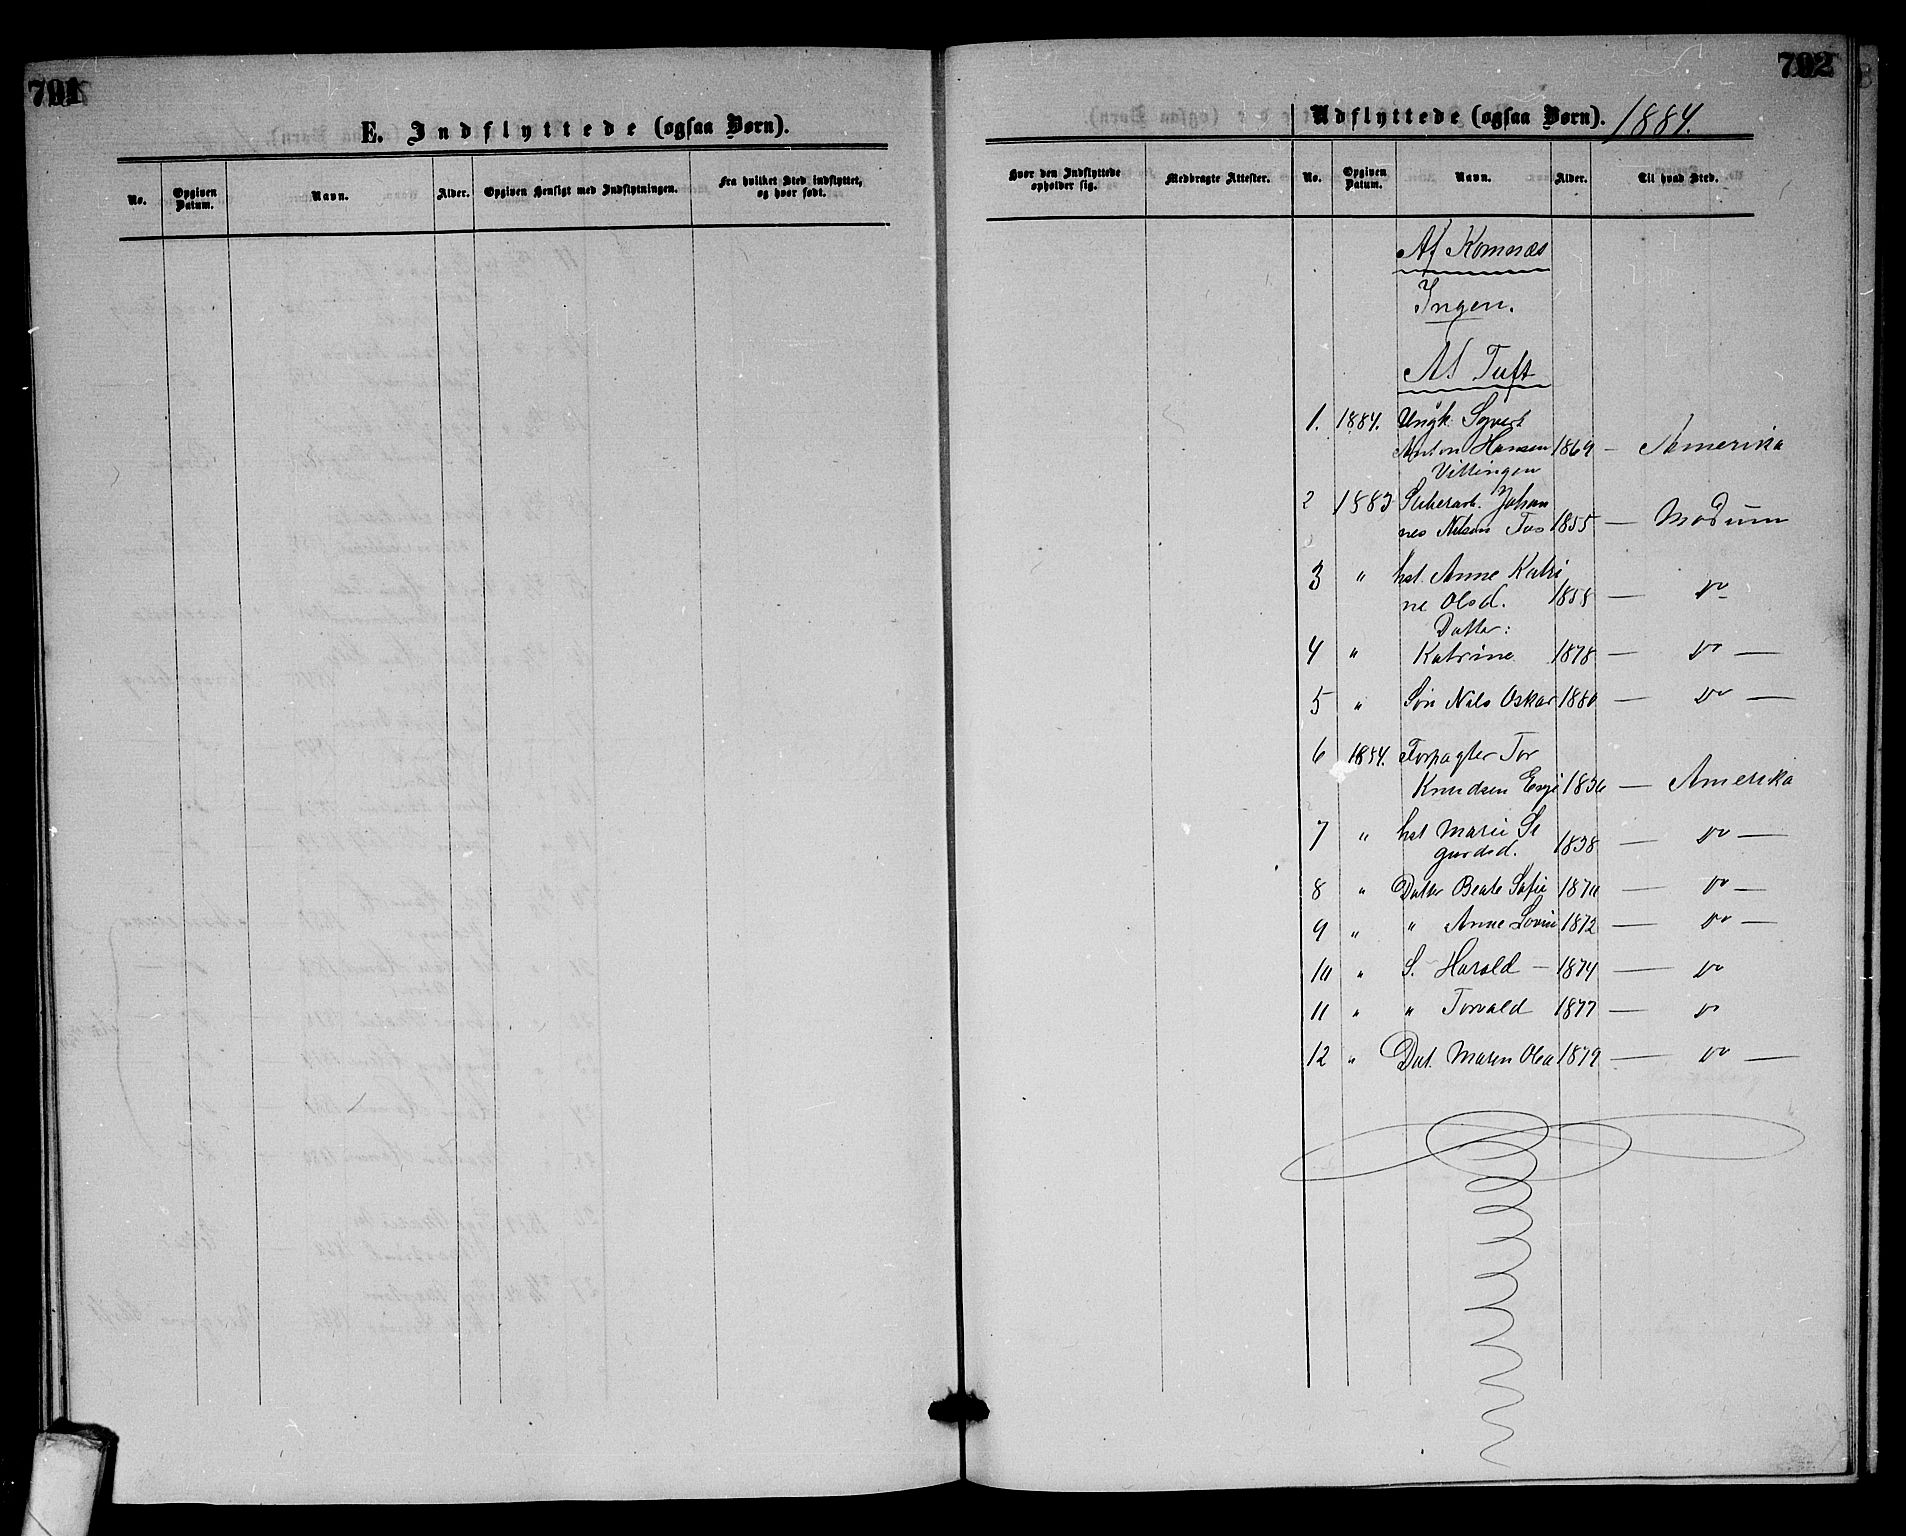 791
E. Indflyttede (ogsaa Børn).
No. Opgiven Datum. Navn. Alder. Opgiven Hensigt med Indflytningen. Fra hvilket Sted indflyttet, og hvor født.
792
Udflyttede (ogsaa Børn). 1884.
Hvor den Indflyttede opholder sig. Medbragte Attester. No. Opgiven Datum. Navn. Alder. Til hvad Sted.
Af Komnæs
Ingen.
Af Tuft
1. 1884. Ungk. Syvert
Anton Hansen 1869 — Amerika
Vittingen
2 1883 Sliberarb. Johan
nes Nilsen Fos 1855 — Modum
3 " hst. Anne Katri
ne Olsd. 1858 — do
Datter:
4 " Katrine 1878 — do —
5 " Søn Nils Oskar 1880 — do —
6 1884. Forpagter Tor
Knudsen Enge 1836 — Amerika
7 " hst Marie Si
gurdsd. 1838 — do —
8 " Datter Beate Sofie 1870 — do —
9 " " Anne Lovise 1872 — do —
10 " S. Harald — 1874 — do
11 " " Torvald 1877 — do
12 " Dat. Maren Olea 1879 — do —